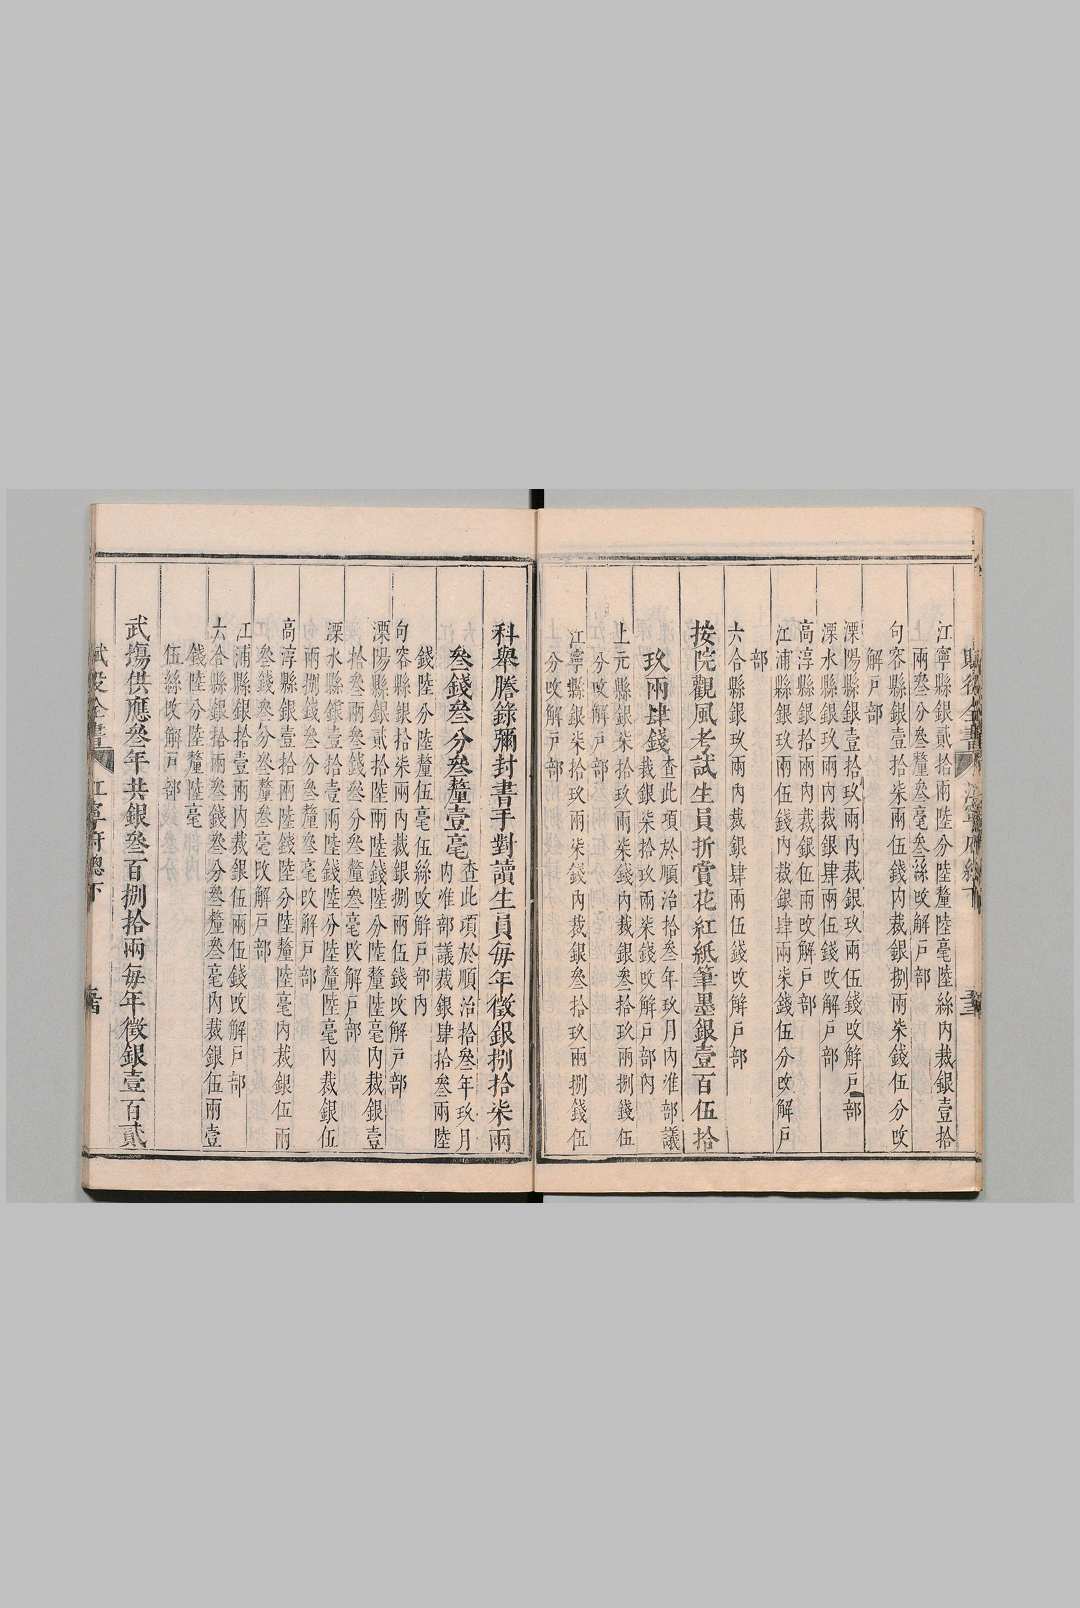 江寧縣銀貳拾兩陸分陸釐陸毫陸絲內裁銀壹拾
上兩叁分叁釐叁毫叁絲改解戶部
句容縣銀壹拾柒兩伍錢內裁銀捌兩柒錢伍分改
解戶部
溧陽縣銀壹拾玖兩內裁銀玖兩伍錢改解戶部
溧水縣銀玖兩內裁銀肆兩伍錢改解戶部
高淳縣銀拾兩內裁銀伍兩改解戶部
江浦縣銀玖兩伍錢內裁銀肆兩柒錢伍分改解戶
部
六合縣銀玖兩內裁銀肆兩伍錢改解戶部
按院觀風考試生員折賞花紅紙筆墨銀壹百伍拾
玖兩肆錢
查此項於順治拾叁年玖月內准部議
裁銀柒拾玖兩柒錢改解戶部內
上元縣銀柒拾玖兩柒錢內裁銀叁拾玖兩捌錢伍
分改解戶部
江寧縣銀柒拾玖兩柒錢內裁銀叁拾玖兩捌錢伍
分改解戶部
科舉謄錄彌封書手對讀生員每年徵銀捌拾柒兩
叁錢叁分叁釐壹毫
查此項於順治拾叁年玖月
內准部議裁銀肆拾叁兩陸
錢陸分陸釐伍毫伍絲改解戶部內
句容縣銀拾柒兩內裁銀捌兩伍錢改解戶部
溧陽縣銀貳拾兩陸錢陸分陸釐陸毫內裁銀壹
拾兩叁錢叁分叁釐叁毫改解戶部
溧水縣銀壹拾壹兩陸錢陸分陸釐陸毫內裁銀伍
兩捌錢叁分叁釐叁毫改解戶部
高淳縣銀壹拾兩陸錢陸分陸釐陸毫內裁銀伍兩
叁錢叁分叁釐叁毫改解戶部
江浦縣銀拾壹兩內裁銀伍兩伍錢改解戶部
六合縣銀拾兩叁錢叁分叁釐叁毫內裁銀伍兩壹
錢陸分陸釐陸毫
伍絲改解戶部
武塲供應叁年共銀叁百捌拾兩每年徵銀壹百貳
賦役全書
江寧府總下